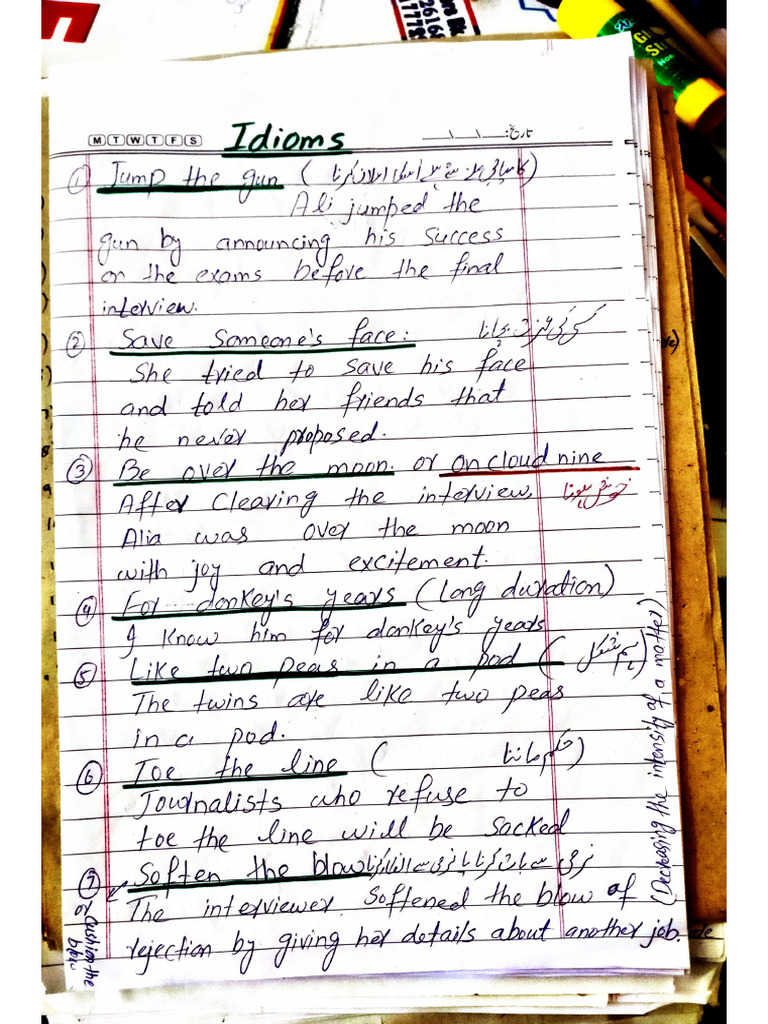 M T W T F S
Idioms
تاریخ:
① Jump the gun (کامیابی ملنے سے پہلے اسکا اعلان کرنا)
Ali jumped the
gun by announcing his success
on the exams before the final
interview.
② Save Someone's face: کسی کی عزت بچانا
She tried to save his face
and told her friends that
he never proposed.
③ Be over the moon. or on cloud nine
After Clearing the interview, خوش ہونا
Alia was over the moon
with joy and excitement.
④ For donkey's years (long duration)
I know him for donkey's years
⑤ Like two peas in a pod (ہم شکل)
The twins are like two peas
in a pod.
⑥ Toe the line ( حکم ماننا)
Journalists who refuse to
toe the line will be sacked
⑦ Soften the blow نرمی سے بات کرنا یا نرمی سے
The interviewer softened the blow of
rejection by giving her details about another job.
or Cushion the
blow
(Decreasing the intensity of a matter)